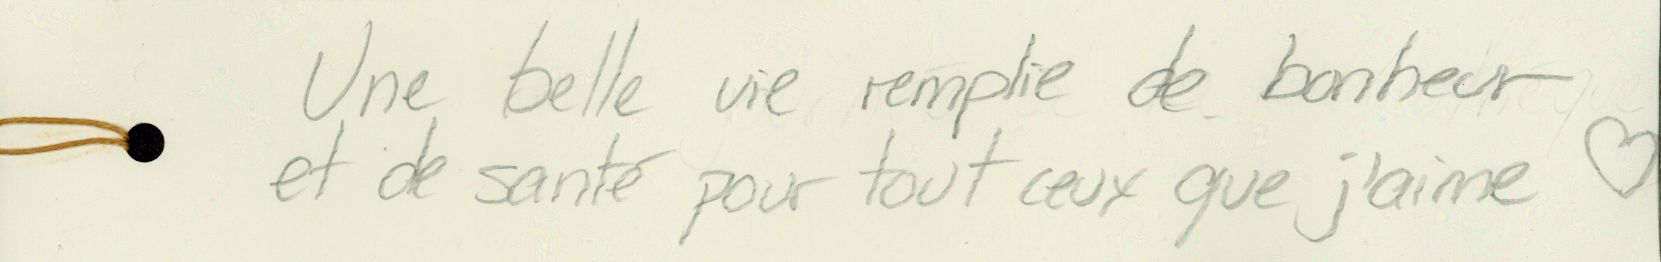 Une belle vie remplie de bonheur
et de santé pour tout ceux que j'aime ♡